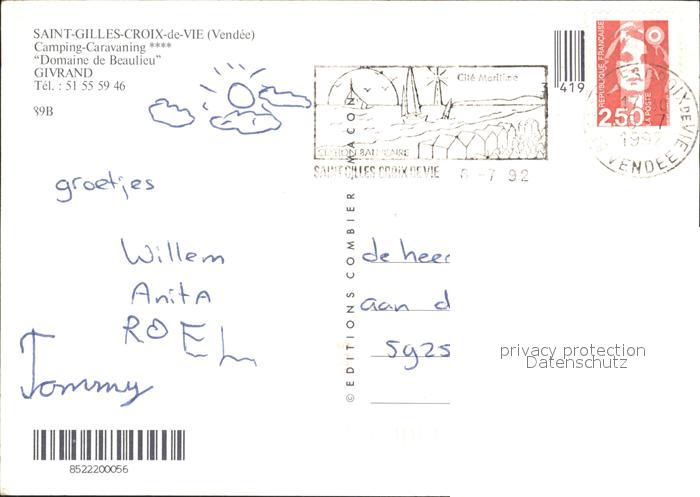 SAINT-GILLES-CROIX-de-VIE (Vendée)
Camping-Caravaning ****
"Domaine de Beaulieu"
GIVRAND
Tél. : 51 55 59 46
89B
Cité Maritime
STATION BALNEAIRE
SAINT GILLES CROIX DE VIE 6-7 92
3
419
REPUBLIQUE FRANÇAISE
2,50
LA POSTE
17
1992
VENDEE
groetjes
Willem
Anita
ROEL
Tommy
© EDITIONS COMBIER MACON
de heer
aan d
5925
privacy protection
Datenschutz
8522200056